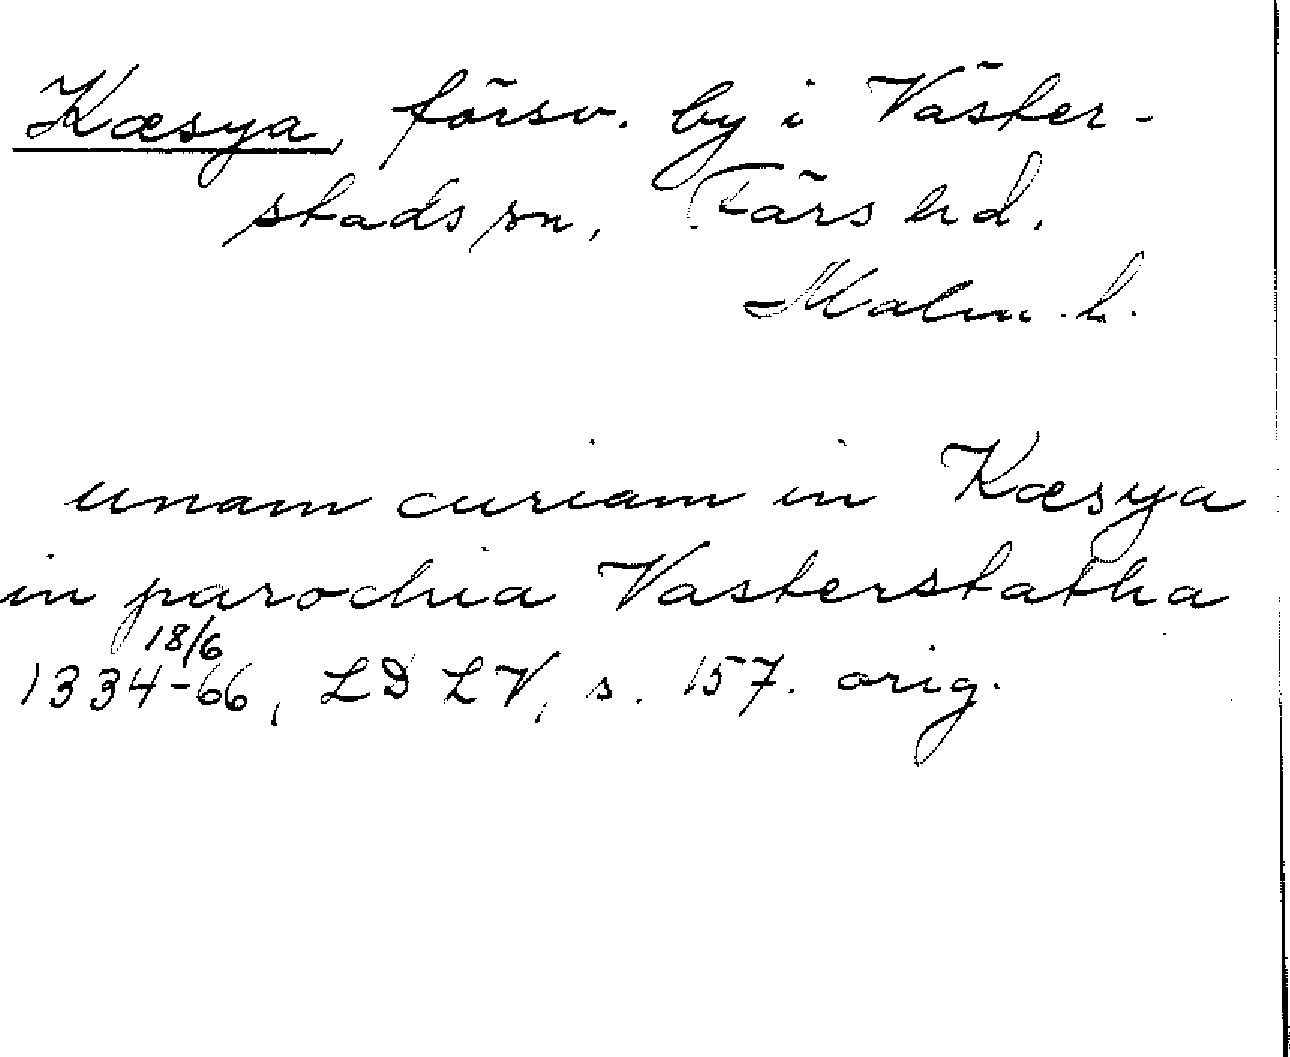 Kæsya, försv. by i Väster-
stads sn, Färs hd,
Malm. l.
unam curiam in Kæsya
in parochia Vasterstatha
18/6
1334-66, LD LV, s. 157. orig.